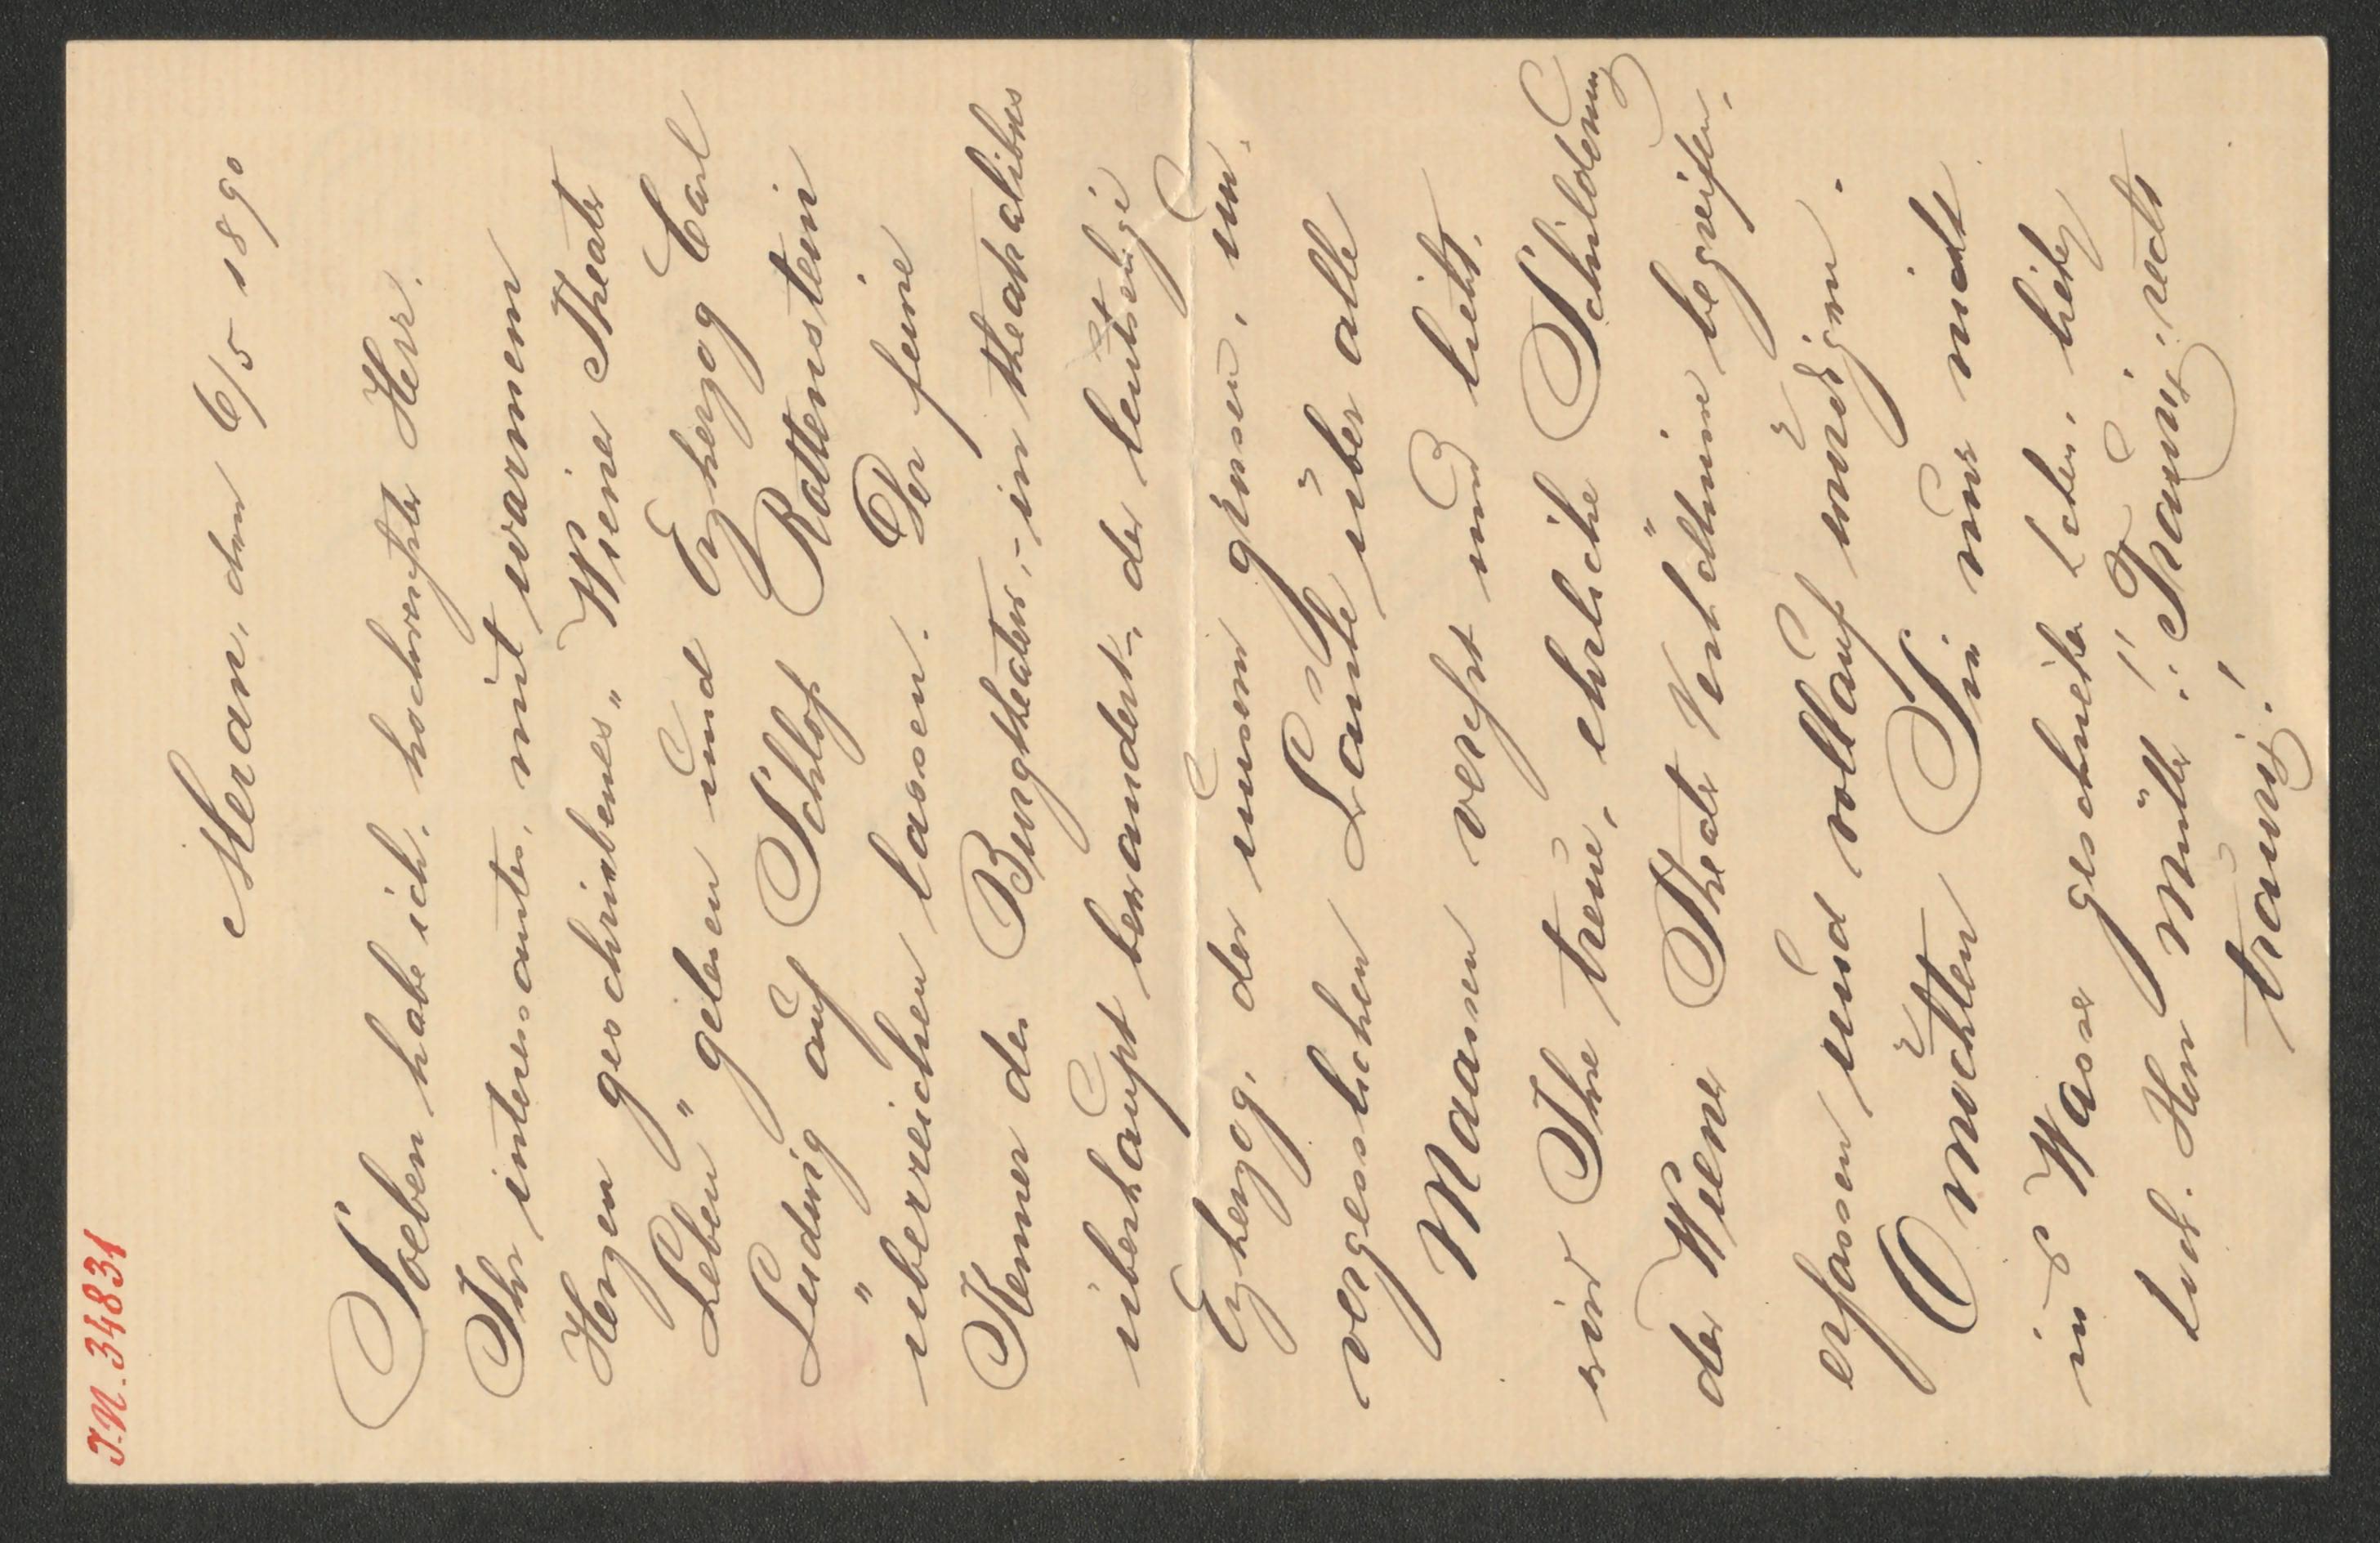 J.N. 34831
Meran, den 6/5 1890
Soeben habe ich, hochverehrter Herr,
Ihr interessantes, mit warmem
Herzen geschriebenes „Wiener Theater
Leben" gelesen und Erzherzog Carl
Ludwig auf Schloß Rottenstein
überreichen lassen. Der feine
Kenner des Burgtheaters, – in theatralibus
überhaupt bewandert –, der leutselige
Erzherzog, der unsern grossen, un
vergesslichen Laube über alle
Maassen verehrt und liebt,
wird Ihre treue, ehrliche Schilderung
der Wiener Theater Verhältnisse begreifen,
erfassen und vollauf würdigen.
O möchten Sie nur nicht
in's Wasser geschrieben haben, lieber
Herr Müller! Traurig, recht
traurig!